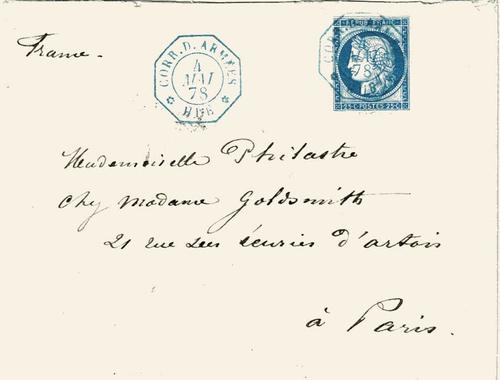 France.
CORR. D. ARMÉES
4
MAI
78
HUE
25 C POSTES 25 C
Mademoiselle Philastre
chez Madame Goldsmith
21 rue des écuries d'artois
à Paris.